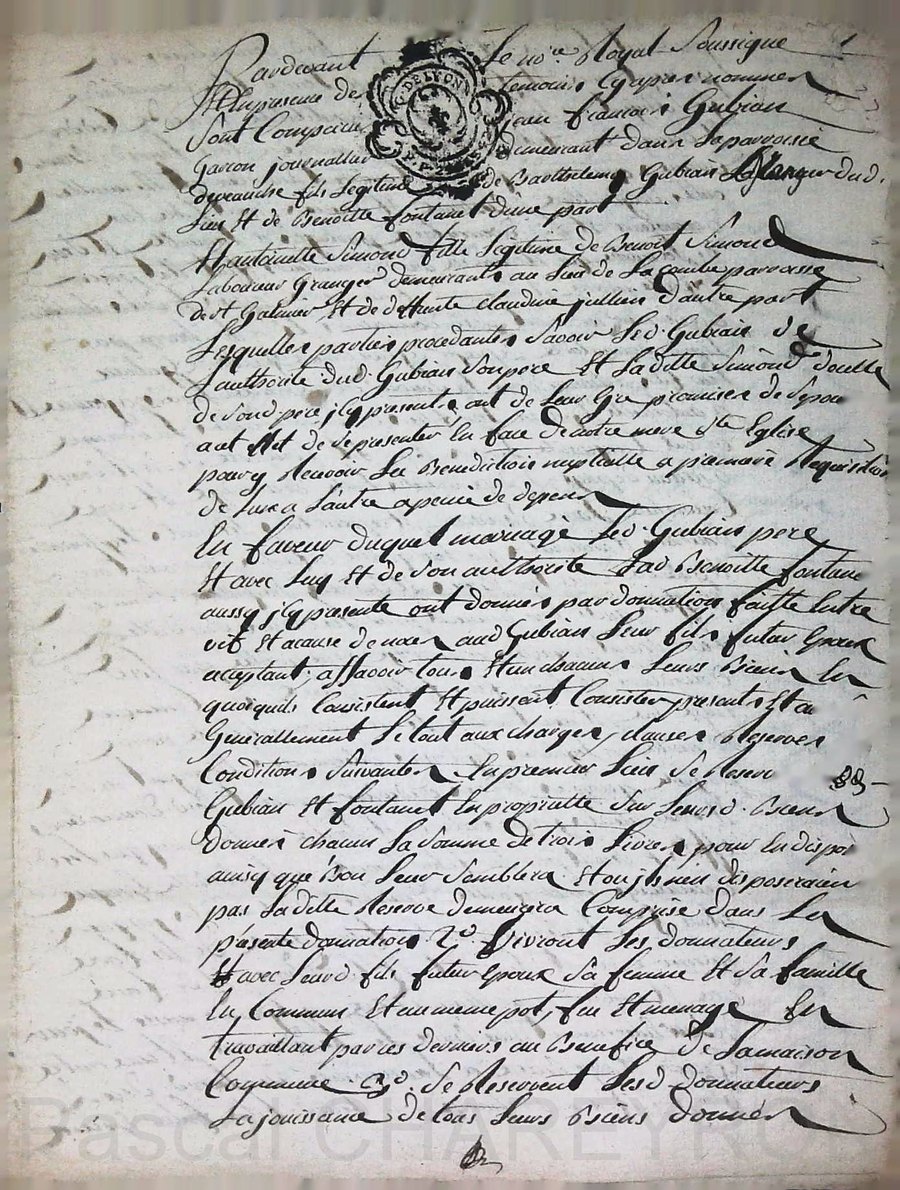 Pardevant Le no.re Royal Soussigné
Et En presence des temoins Cy apres nommés
Sont Comparus jean francois Gubian
Garcon journallier demeurant dans La paroisse
fils Legitime de Barthelemy Gubian Granger dud.
Lieu Et de Benoitte fontanet d'une part
Et antoinette Simond fille Legitime de Benoit Simond
Laboureur Granger demeurants au Lieu de La Combe parroisse
de St Galmier Et de deffunte claudine jullien d'autre part
Lesquelles parties procedantes Savoir Led. Gubian de
L'authorité dud. Gubian Son pere Et La ditte Simond d'celle
de Sond pere jcy presents, ont de Leur Gré promis de Sepou
Et de Se presenter En face de notre mere Ste Eglise
pour y Recevoir La Benediction nuptialle a premiere Requisition
de Lune a L'autre a peine de depens
En faveur duquel mariage Led. Gubian pere
Et avec Luy Et de Son authorité Lad Benoitte fontane
aussy jcy presente ont donnés par donnation faitte Entre
vif Et a cause de noces aud Gubian Leur fils futur Epoux
acceptant, a Savoir tous Et un chacuns Leurs Biens En
quoi quils Consistent Et puissent Consister presents Et a
Generallement Le tout aux charges, clauses Reserves
Conditions Suivantes En premier Lieu Se Reserv
Gubian Et fontanet En propriette Sur Leursd. Biens
donnés chacun La Somme de trois Livres pour En dispo
ainsy que Bon Leur Semblera Et ou jls nen disposeraien
pas La ditte Reserve demeurera Comprise dans La
présente donnation 2°. vivront Les donnateurs
Et avec Leurd. fils futur Epoux Sa femme Et Sa famille
En Commun Et au meme pot, feu Et menage En
travaillant par ces derniers au Benefice de La maison
Commune. 3°. Se Reservent Lesd donnateurs
La jouissance de tous Leurs Biens donnés
G. DE LYON
Pascal CHAREYRON